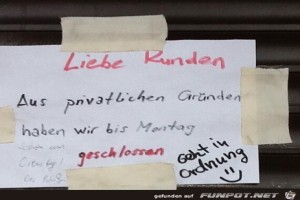 Liebe Kunden
Aus privatlichen Gründen
haben wir bis Montag
geschlossen
Geht in
Ordnung
gefunden auf FUNPOT.NET